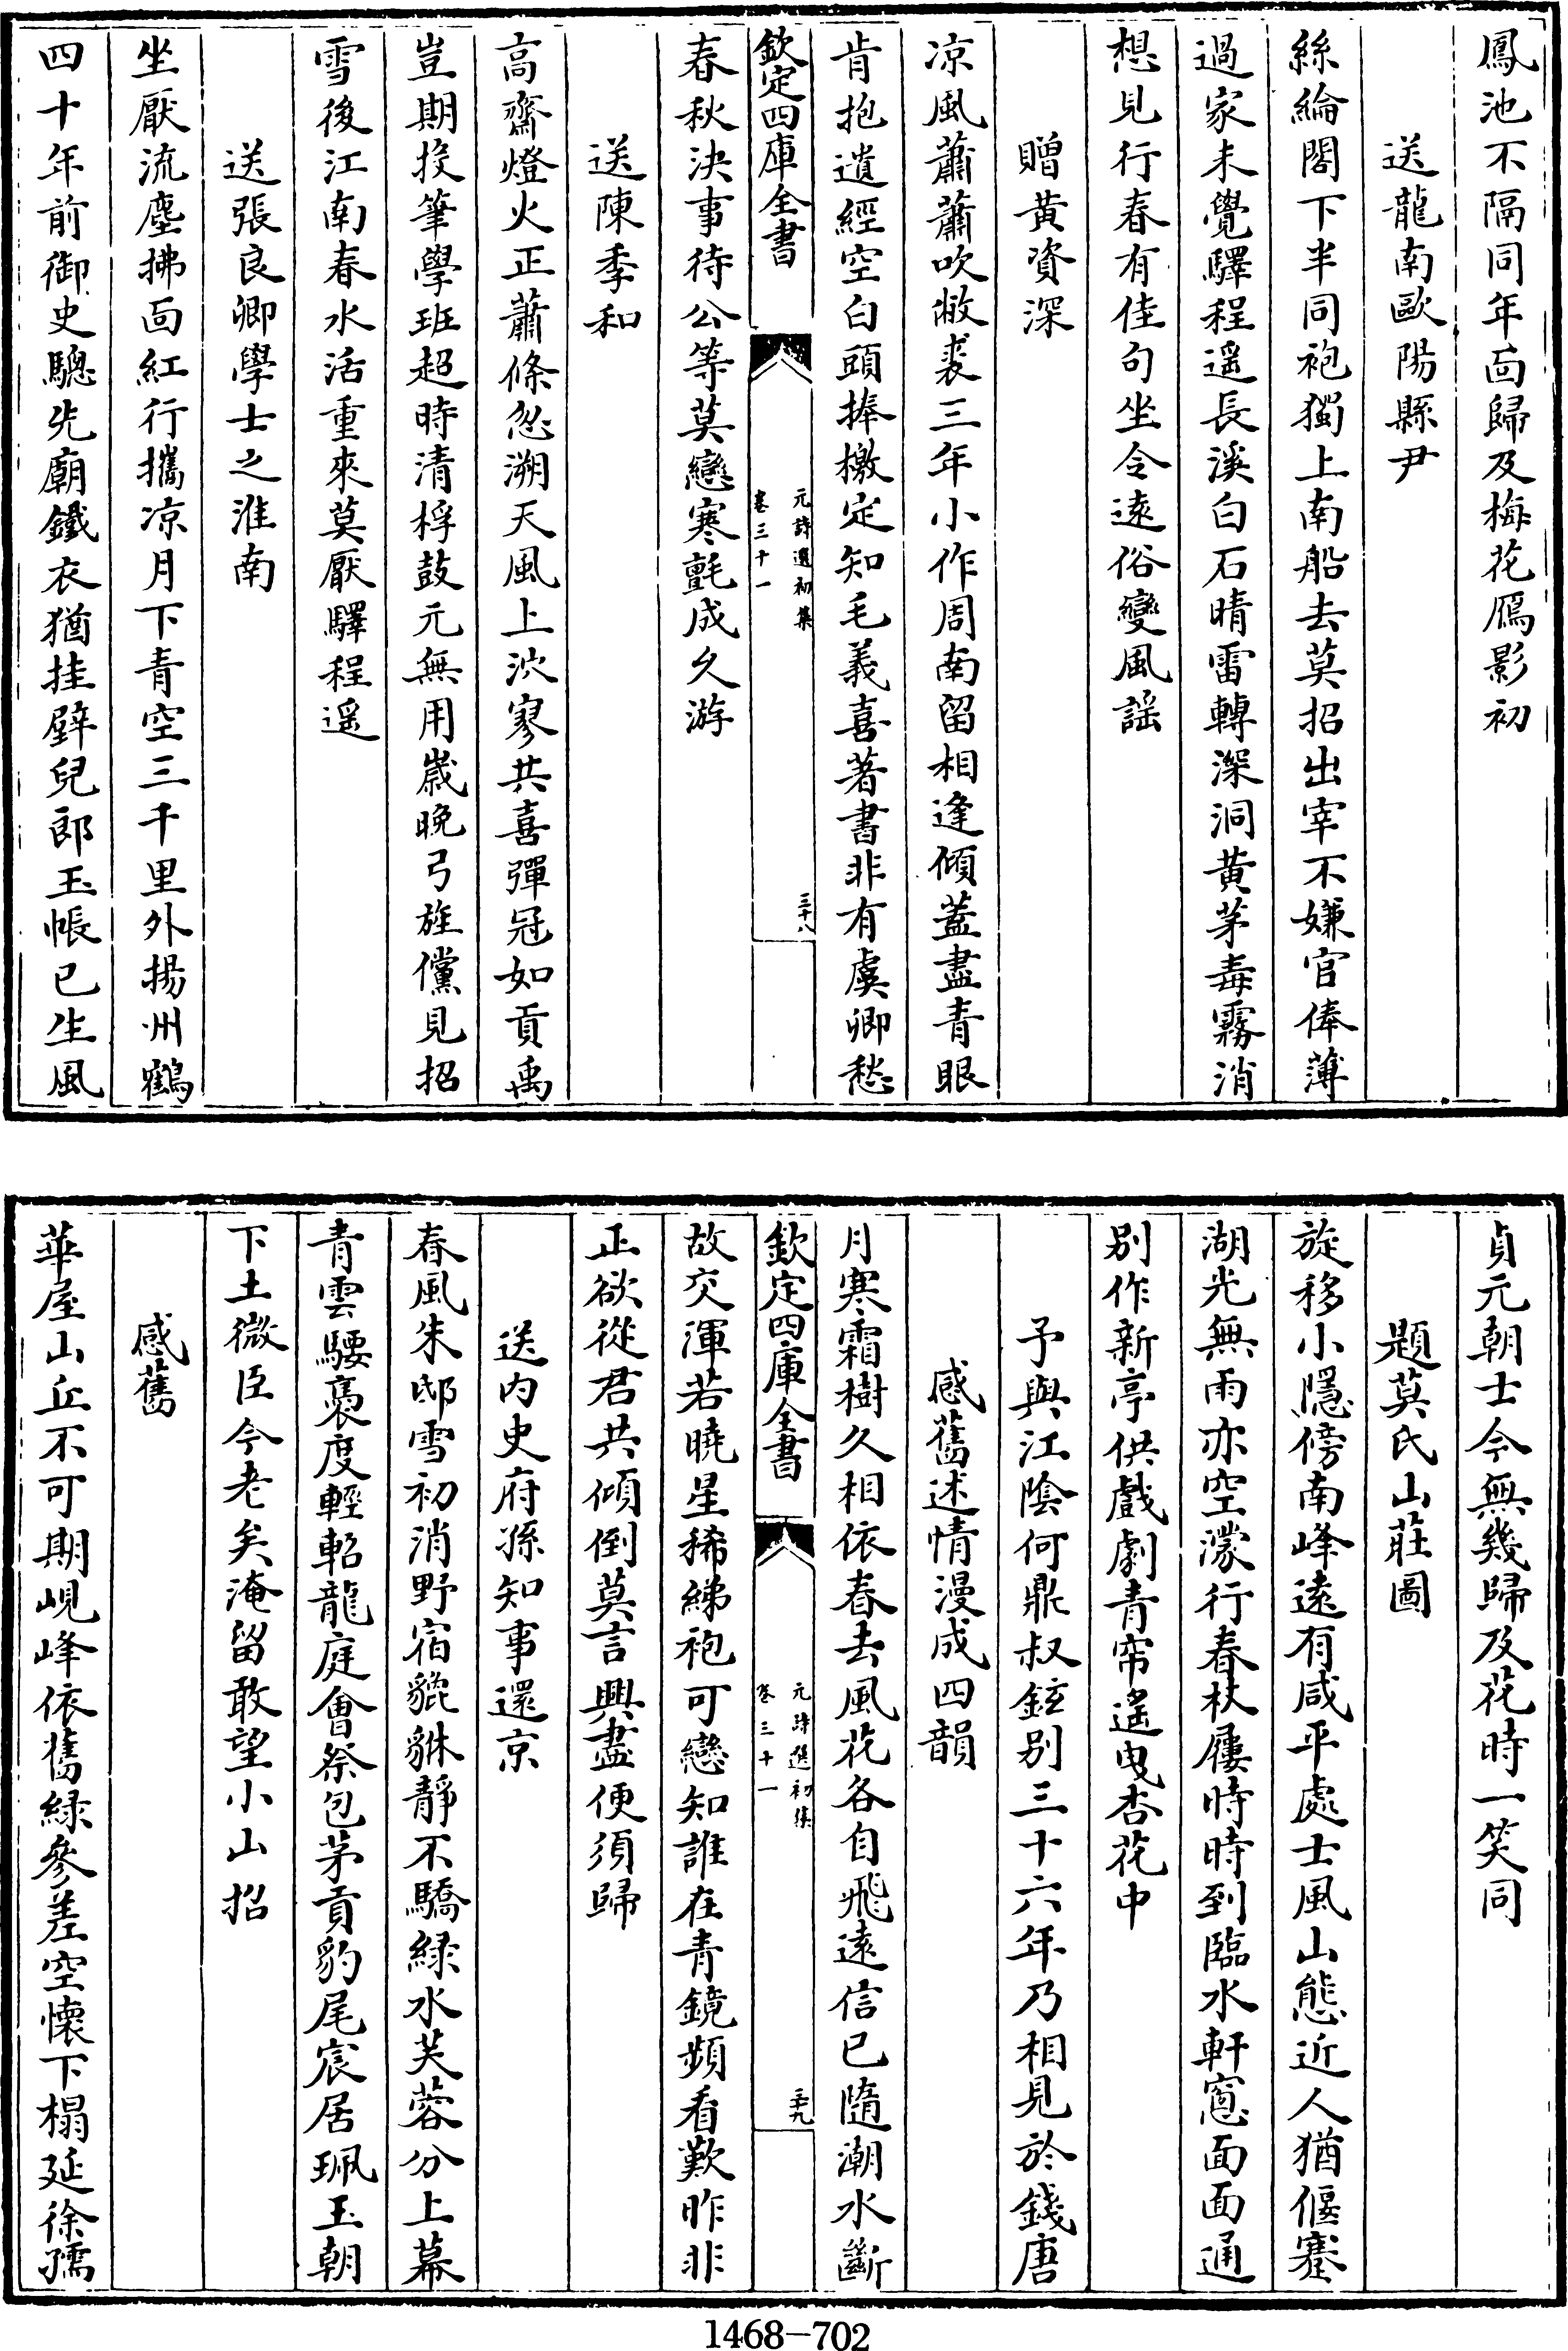 鳳池不隔同年面歸及梅花鴈影初
送龍南歐陽縣尹
絲綸閣下半同袍獨上南船去莫招出宰不嫌官俸薄
過家未覺驛程遥長溪白石晴雷轉深洞黄茅毒霧消
想見行春有佳句坐令逺俗變風謡
贈黄資深
凉風蕭蕭吹敝裘三年小作周南留相逢傾蓋盡青眼
肯抱遺經空白頭捧檄定知毛義喜著書非有虞卿愁
欽定四庫全書
元詩選初集
卷三十一
三十八
春秋決事待公等莫戀寒氈成久游
送陳季和
高齋燈火正蕭條忽溯天風上泬寥共喜彈冠如貢禹
豈期投筆學班超時清桴鼓元無用歲晚弓旌儻見招
雪後江南春水活重來莫厭驛程遥
送張良卿學士之淮南
坐厭流塵拂面紅行攜凉月下青空三千里外揚州鶴
四十年前御史驄先廟鐵衣猶挂壁兒郎玉帳已生風
貞元朝士今無幾歸及花時一笑同
題莫氏山莊圖
旋移小隱傍南峰逺有咸平處士風山態近人猶偃蹇
湖光無雨亦空濛行春杖屨時時到臨水軒窻面面通
别作新亭供戲劇青帘遥曳杏花中
予與江陰何鼎叔鉉别三十六年乃相見於錢唐
感舊述情漫成四韻
月寒霜樹久相依春去風花各自飛逺信已隨潮水斷
欽定四庫全書
元詩選初集
卷三十一
三十九
故交渾若曉星稀綈袍可戀知誰在青鏡頻看歎昨非
正欲從君共傾倒莫言興盡便須歸
送内史府孫知事還京
春風朱邸雪初消野宿貔貅靜不驕緑水芙蓉分上幕
青雲騕褭度輕軺龍庭會祭包茅貢豹尾宸居珮玉朝
下土微臣今老矣淹留敢望小山招
感舊
華屋山丘不可期峴峰依舊緑參差空懷下榻延徐孺
1468—702